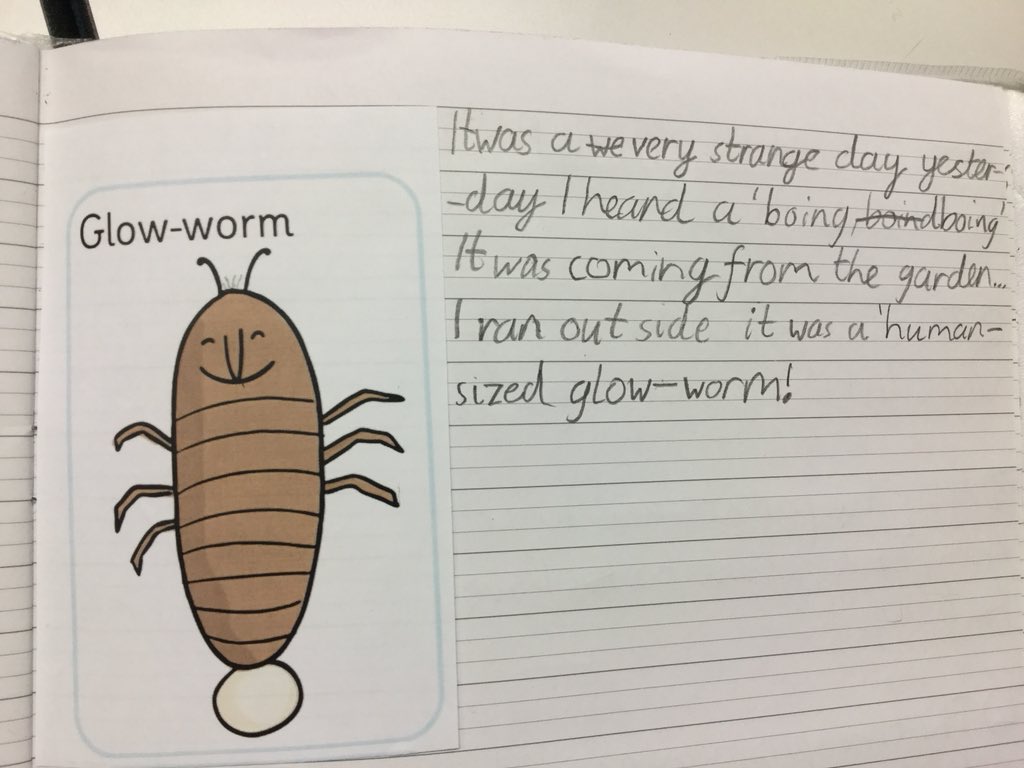 Glow-worm
It was a we very strange day yester-
-day I heard a 'boing, boind boing'
It was coming from the garden...
I ran outside it was a 'human-
sized glow-worm!